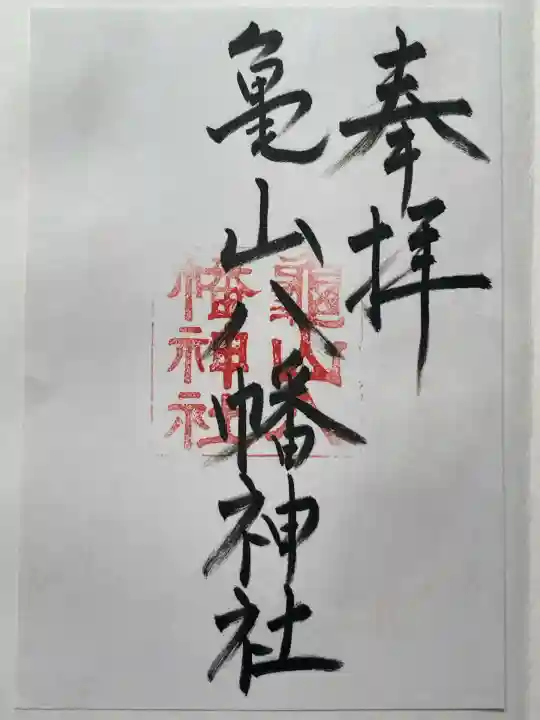 奉拝
亀山八幡神社
龜山八
幡神社